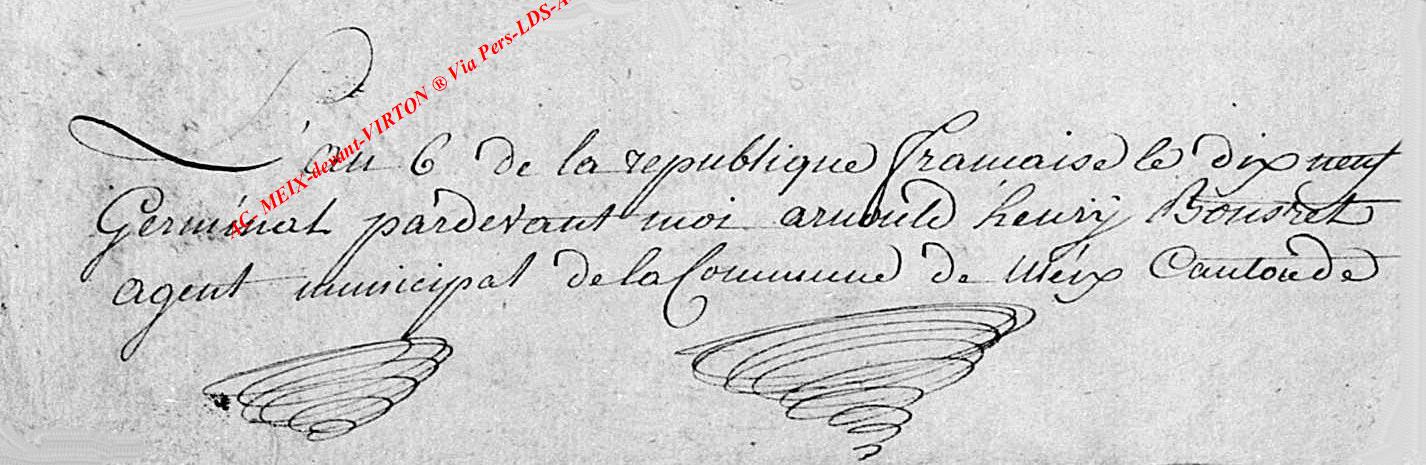 AC. MEIX-devant-VIRTON ® Via Pers-LDS-A
L'an 6 de la republique francaise le dix neuf
Germinal pardevant moi arnould henry Bousret
agent municipal de la Commune de Meix Canton de